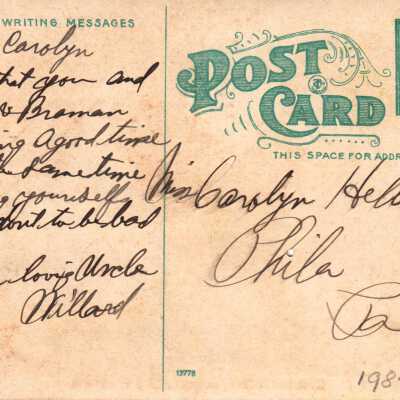 WRITING MESSAGES
Carolyn
that you and
Braman
ing a good time
same time
yourself
dont to be bad
loving Uncle
Willard
POST CARD
THIS SPACE FOR ADDR
Miss Carolyn Hel
Phila
Pa
13778
198